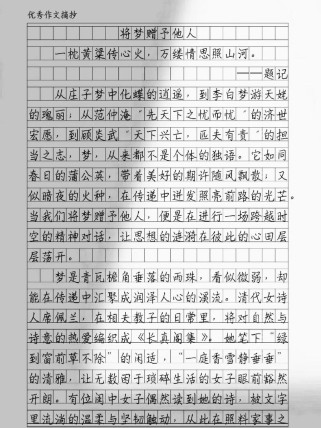 优秀作文摘抄
将梦赠予他人
一枕黄粱传心火，万缕情思照山河。
——题记
从庄子梦中化蝶的逍遥，到李白梦游天姥
的瑰丽；从范仲淹“先天下之忧而忧”的济世
宏愿，到顾炎武“天下兴亡，匹夫有责”的担
当之志，梦，从来都不是个体的独语。它如同
春日的蒲公英，带着美好的期许随风飘散；又
似暗夜的火种，在传递中迸发照亮前路的光芒。
当我们将梦赠予他人，便是在进行一场跨越时
空的精神对话，让思想的涟漪在彼此的心田层
层荡开。
梦是青瓦檐角垂落的雨珠，看似微弱，却
能在传递中汇聚成润泽人心的溪流。清代女诗
人席佩兰，在相夫教子的日常里，将对自然与
诗意的热爱编织成《长真阁集》。她笔下“绿
到窗前草不除”的闲适，“一庭香雪静垂垂”
的清雅，让无数困于琐碎生活的女子眼前豁然
开朗。有位闺中女子偶然读到她的诗，被文字
里流淌的温柔与坚韧触动，从此在照料家事之